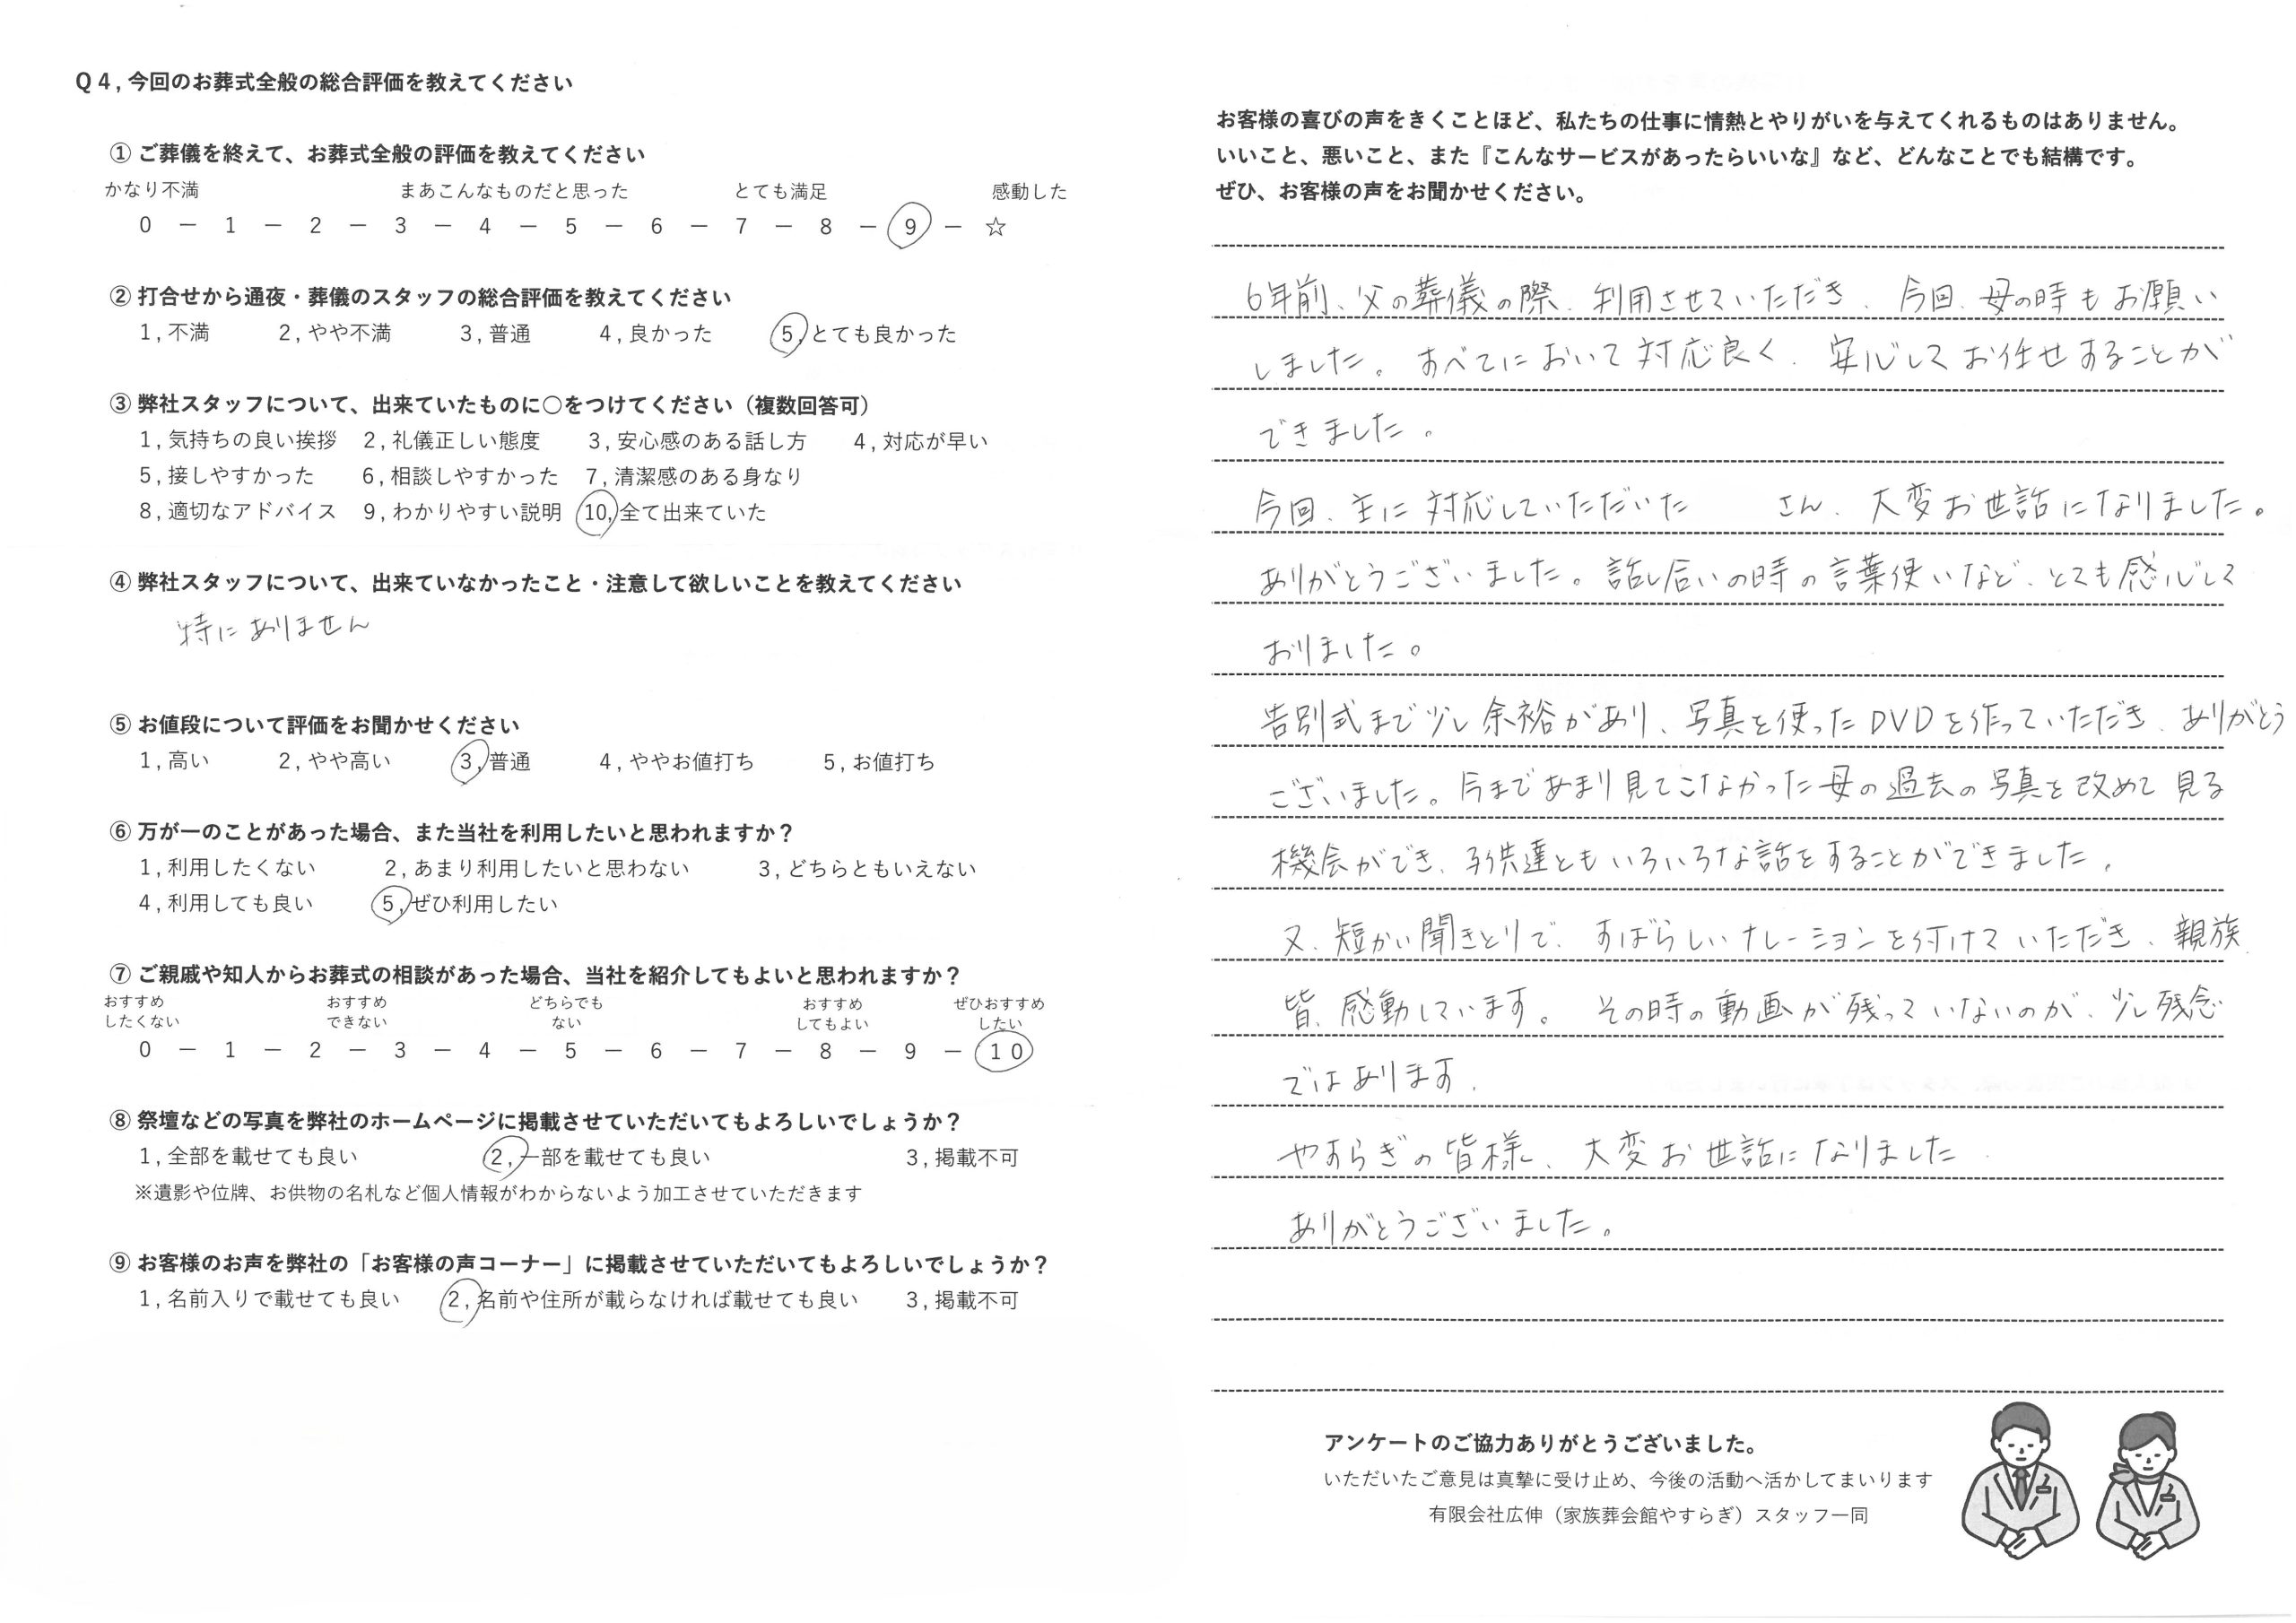 Q4,今回のお葬式全般の総合評価を教えてください
① ご葬儀を終えて、お葬式全般の評価を教えてください
かなり不満 まあこんなものだと思った とても満足 感動した
0 － 1 － 2 － 3 － 4 － 5 － 6 － 7 － 8 － 9 － ☆
② 打合せから通夜・葬儀のスタッフの総合評価を教えてください
1,不満 2,やや不満 3,普通 4,良かった 5,とても良かった
③ 弊社スタッフについて、出来ていたものに○をつけてください（複数回答可）
1,気持ちの良い挨拶 2,礼儀正しい態度 3,安心感のある話し方 4,対応が早い
5,接しやすかった 6,相談しやすかった 7,清潔感のある身なり
8,適切なアドバイス 9,わかりやすい説明 10,全て出来ていた
④ 弊社スタッフについて、出来ていなかったこと・注意して欲しいことを教えてください
特にありません
⑤ お値段について評価をお聞かせください
1,高い 2,やや高い 3,普通 4,ややお値打ち 5,お値打ち
⑥ 万が一のことがあった場合、また当社を利用したいと思われますか？
1,利用したくない 2,あまり利用したいと思わない 3,どちらともいえない
4,利用しても良い 5,ぜひ利用したい
⑦ ご親戚や知人からお葬式の相談があった場合、当社を紹介してもよいと思われますか？
おすすめ おすすめ どちらでも おすすめ ぜひおすすめ
したくない できない ない してもよい したい
0 － 1 － 2 － 3 － 4 － 5 － 6 － 7 － 8 － 9 － 10
⑧ 祭壇などの写真を弊社のホームページに掲載させていただいてもよろしいでしょうか？
1,全部を載せても良い 2,一部を載せても良い 3,掲載不可
※遺影や位牌、お供物の名札など個人情報がわからないよう加工させていただきます
⑨ お客様のお声を弊社の「お客様の声コーナー」に掲載させていただいてもよろしいでしょうか？
1,名前入りで載せても良い 2,名前や住所が載らなければ載せても良い 3,掲載不可
お客様の喜びの声をきくことほど、私たちの仕事に情熱とやりがいを与えてくれるものはありません。
いいこと、悪いこと、また『こんなサービスがあったらいいな』など、どんなことでも結構です。
ぜひ、お客様の声をお聞かせください。
6年前、父の葬儀の際、利用させていただき、今回、母の時もお願い
しました。すべてにおいて対応良く、安心してお任せすることが
できました。
今回、主に対応していただいた さん、大変お世話になりました。
ありがとうございました。話し合いの時の言葉使いなど、とても感心して
おりました。
告別式まで少し余裕があり、写真を使ったDVDを作っていただき、ありがとう
ございました。今まであまり見てこなかった母の過去の写真を改めて見る
機会ができ、子供達ともいろいろな話をすることができました。
又、短かい聞きとりで、すばらしいナレーションを付けていただき、親族
皆、感動しています。その時の動画が残っていないのが、少し残念
ではあります。
やすらぎの皆様、大変お世話になりました
ありがとうございました。
アンケートのご協力ありがとうございました。
いただいたご意見は真摯に受け止め、今後の活動へ活かしてまいります
有限会社広伸（家族葬会館やすらぎ）スタッフ一同